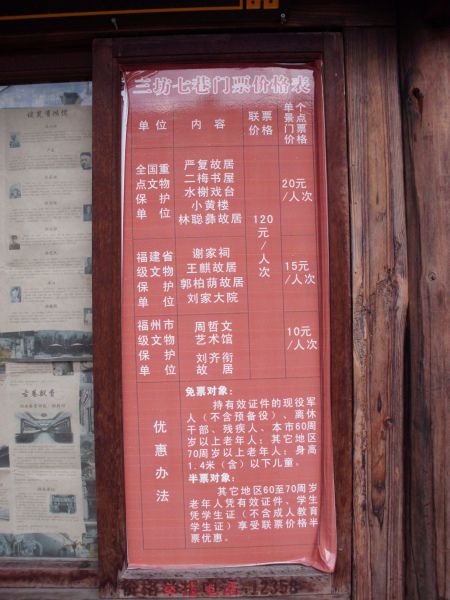 三坊七巷门票价格表
单位 内容 联票价格 单个景点门票价格
全国重点文物保护单位
严复故居
二梅书屋
水榭戏台
小黄楼
林聪彝故居
20元/人次
120元/人次
福建省级文物保护单位
谢家祠
王麒故居
郭柏荫故居
刘家大院
15元/人次
福州市级文物保护单位
周哲文
艺术馆
刘齐衔
故居
10元/人次
优惠办法
免票对象：
持有效证件的现役军
人（不含预备役）、离休
干部、残疾人、本市60周
岁以上老年人；其它地区
70周岁以上老年人；身高
1.4米（含）以下儿童。
半票对象：
其它地区60至70周岁
老年人凭有效证件、学生
凭学生证（不含成人教育
学生证）享受联票价格半
票优惠。
价格举报电话：12358
古巷飘香